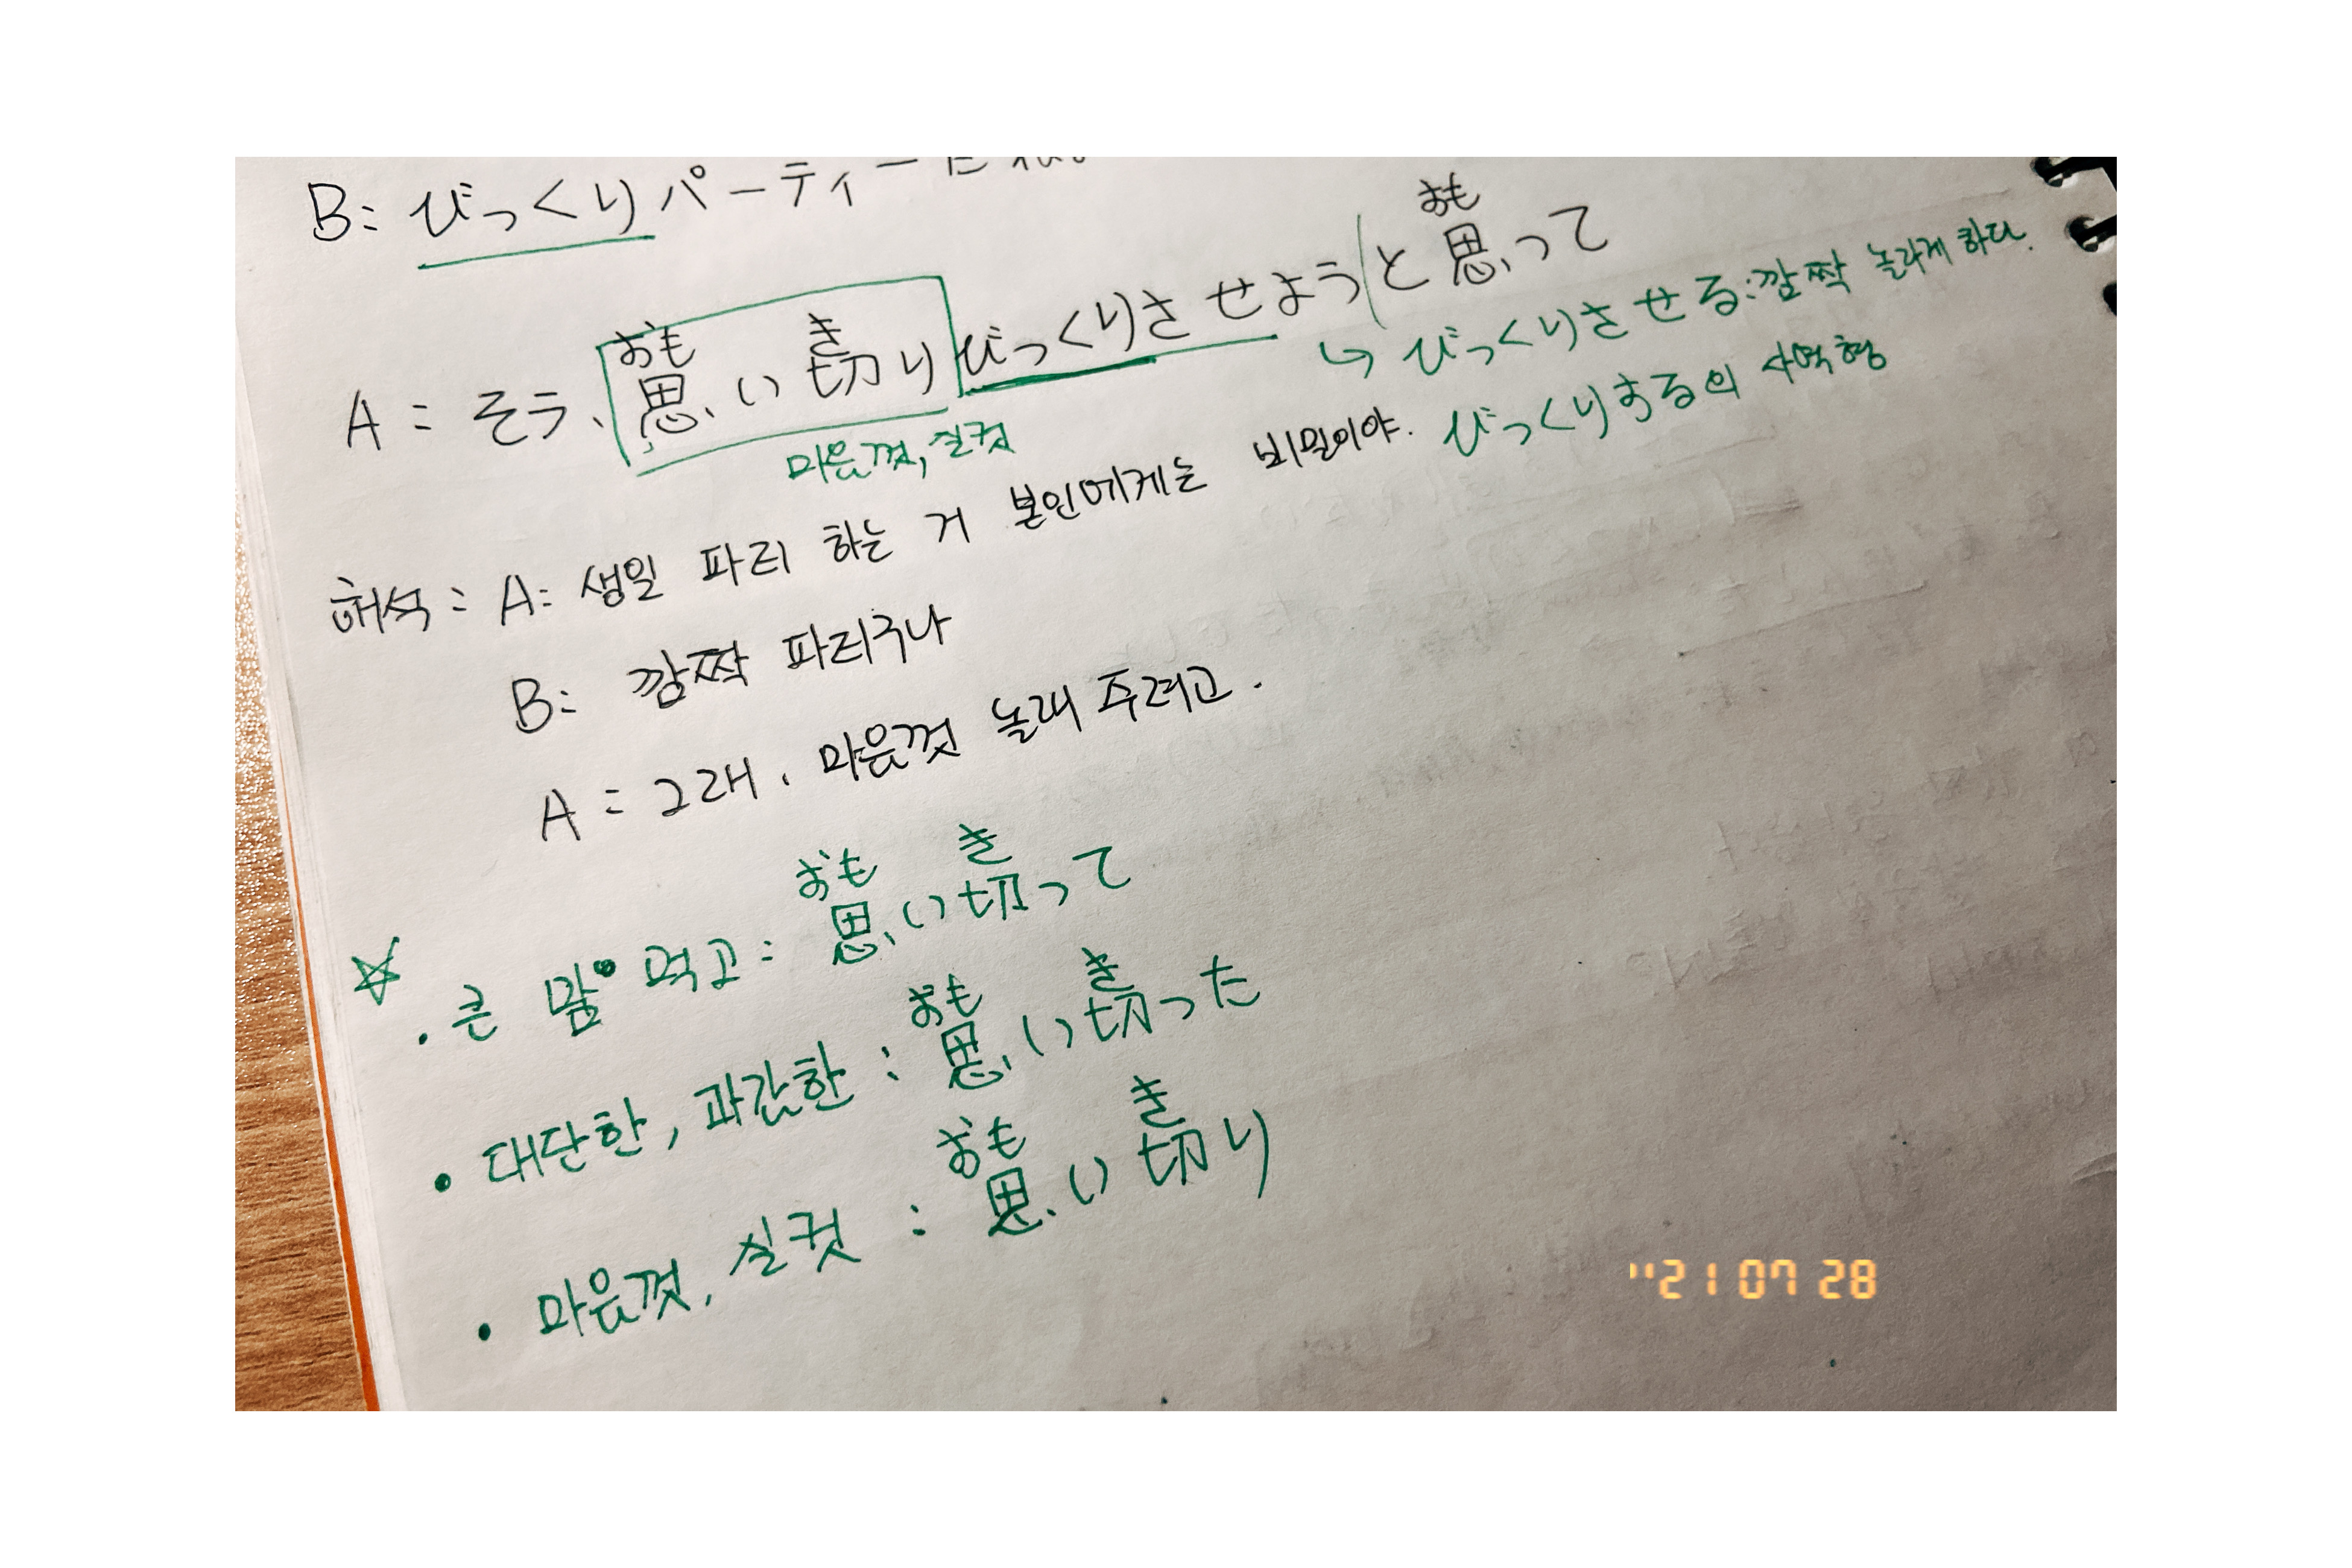 B: びっくりパーティー
おも
A: そう、思い切りびっくりさせようと思って
おも き
マ음껏, 실컷
↳ びっくりさせる: 깜짝 놀라게 하다.
びっくりする의 사역형
해석: A: 생일 파리 하는 거 본인에게는 비밀이야.
B: 깜짝 파리구나
A: 그래. 마음껏 놀래 주려고.
おも き
☆ · 큰 맘 먹고: 思い切って
おも き
· 대단한, 과감한: 思い切った
おも き
· 마음껏, 실컷: 思い切り
"21 07 28